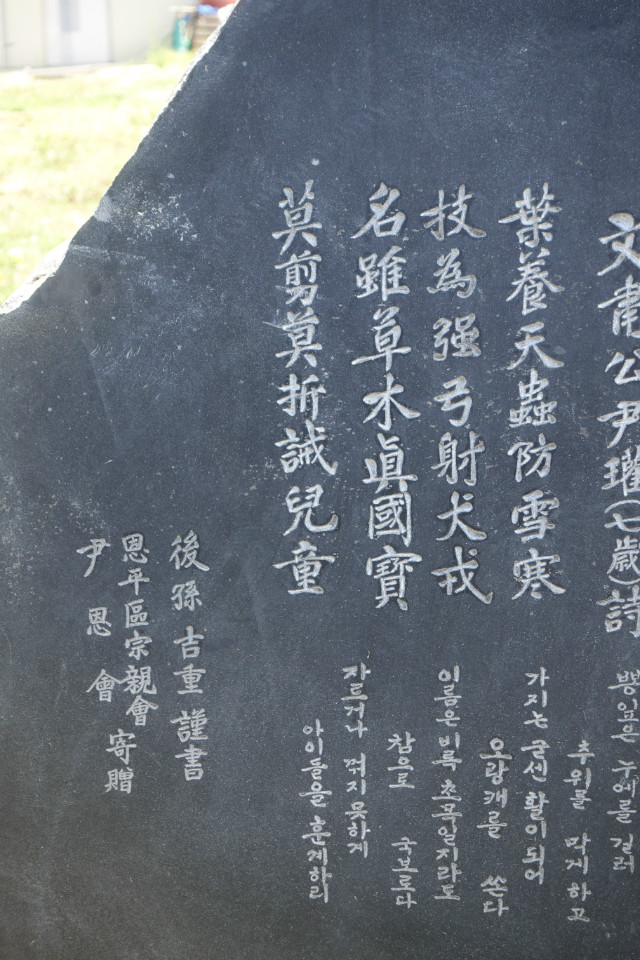 文肅公尹瓘(七歲)詩
葉養天蟲防雪寒
技為强弓射犬戎
名雖草木眞國寶
莫剪莫折誡兒童
뽕잎은 누에를 길러
추위를 막게 하고
가지는 굳센 활이 되어
오랑캐를 쏜다
이름은 비록 초목일지라도
참으로 국보로다
자르거나 꺾지 못하게
아이들을 훈계하리
後孫 吉重 謹書
恩平區宗親會
尹恩會
寄贈